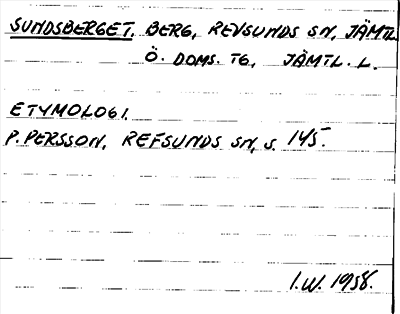 SUNDSBERGET, BERG, REVSUNDS SN, JÄMTL.
Ö. DOMS. TG, JÄMTL. L.
ETYMOLOGI.
P. PERSSON, REFSUNDS SN, S. 145.
I.W. 1958.